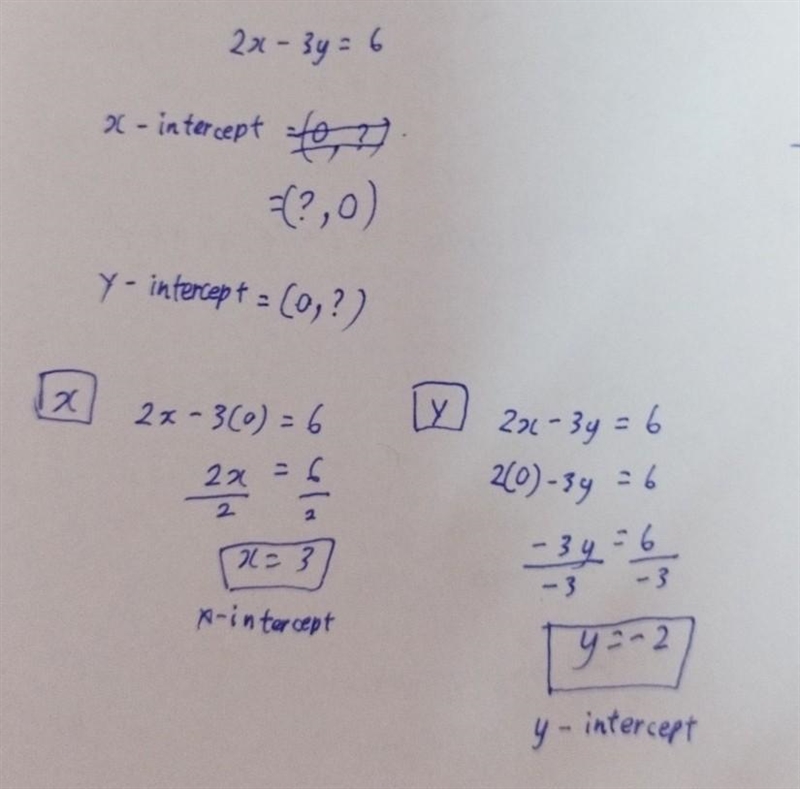 2x - 3y = 6
x - intercept = (0, ?)
= (?, 0)
Y - intercept = (0, ?)
x
2x - 3(0) = 6
2x/2 = 6/2
x = 3
x-intercept
Y
2x - 3y = 6
2(0) - 3y = 6
-3y/-3 = 6/-3
y = -2
y - intercept